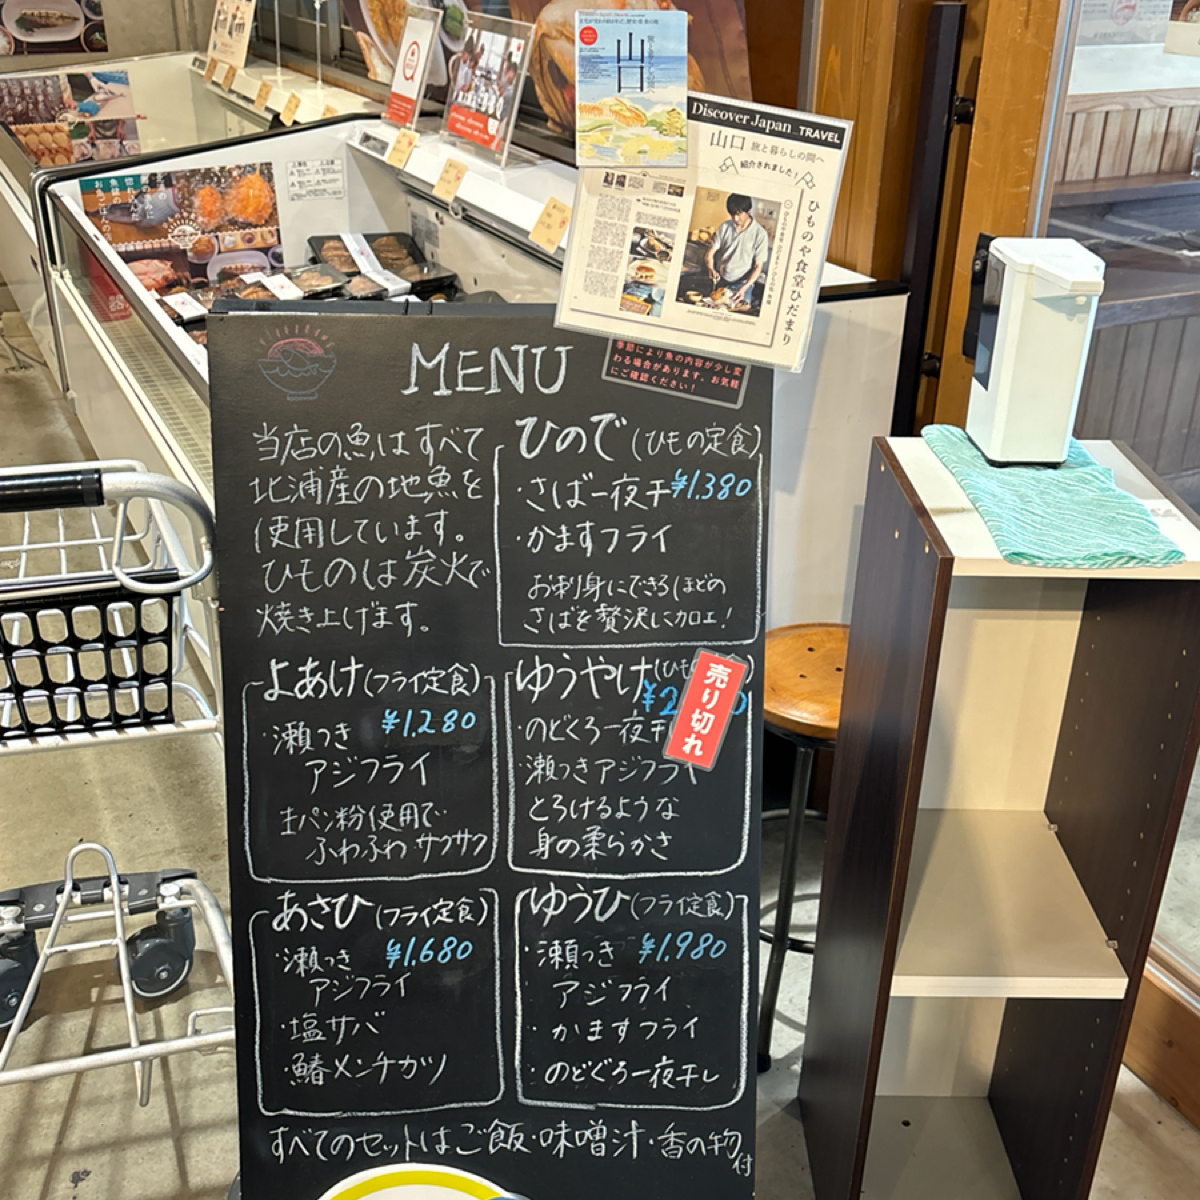 山口
Discover Japan_TRAVEL
山口 旅と暮らしの間へ
紹介されました!
ひものや食堂ひだまり
季節により魚の内容が少し変
わる場合があります。お気軽
にご確認ください!
MENU
当店の魚はすべて
北浦産の地魚を
使用しています。
ひものは炭火で
焼き上げます。
ひので(ひもの定食)
・さば一夜干 ¥1.380
・かますフライ
お刺身にできるほどの
さばを贅沢に加工!
よあけ(フライ定食)
¥1.280
・瀬つき
アジフライ
生パン粉使用で
ふわふわ サクサク
ゆうやけ(ひもの
売り切れ
・のどくろ一夜干
・瀬つきアジフライ
とろけるような
身の柔らかさ
あさひ(フライ定食)
・瀬つき ¥1.680
アジフライ
・塩サバ
・鰆メンチカツ
ゆうひ(フライ定食)
・瀬つき ¥1.980
アジフライ
・かますフライ
・のどぐろ一夜干し
すべてのセットはご飯・味噌汁・香の物付